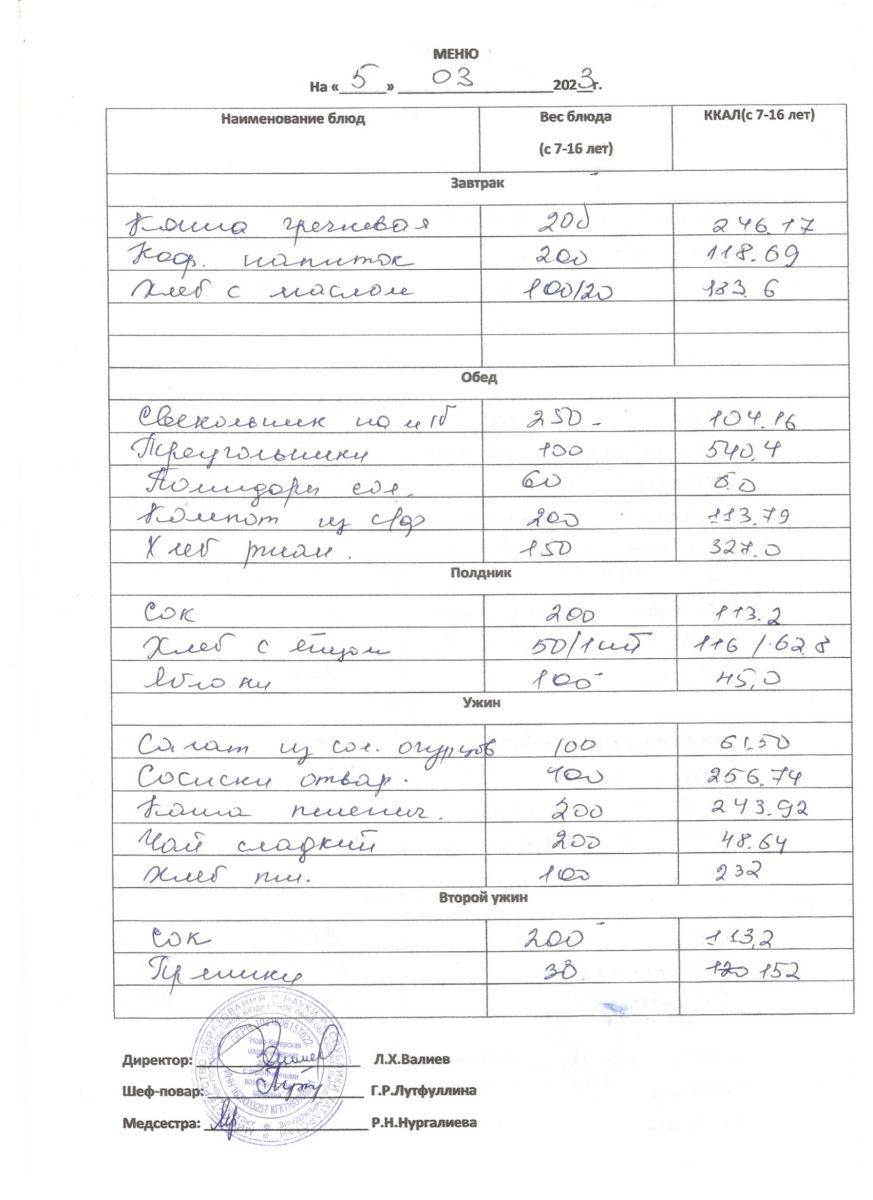 МЕНЮ
На « 5 » 03 2023г.
Наименование блюд Вес блюда (с 7-16 лет) ККАЛ(с 7-16 лет)
Завтрак
Каша гречневая 200 246.17
Коф. напиток 200 118.69
Хлеб с маслом 100/20 183.6
Обед
Свекольник на м/б 250 104.16
Треугольники 100 540,4
Помидоры сол. 60
Компот из с/ф 200 113.79
Хлеб ржан. 150 327.0
Полдник
Сок 200 113.2
Хлеб с яйцом 50/1шт 116 / 62.8
Яблоки 100 45,0
Ужин
Салат из сол. огурцов 100 61.50
Сосиски отвар. 100 256.74
Каша пшенич. 200 243.92
Чай сладкий 200 48.64
Хлеб пш. 100 232
Второй ужин
Сок 200 113,2
Пряники 152
Директор: Л.Х.Валиев
Шеф-повар: Г.Р.Лутфуллина
Медсестра: Р.Н.Нургалиева